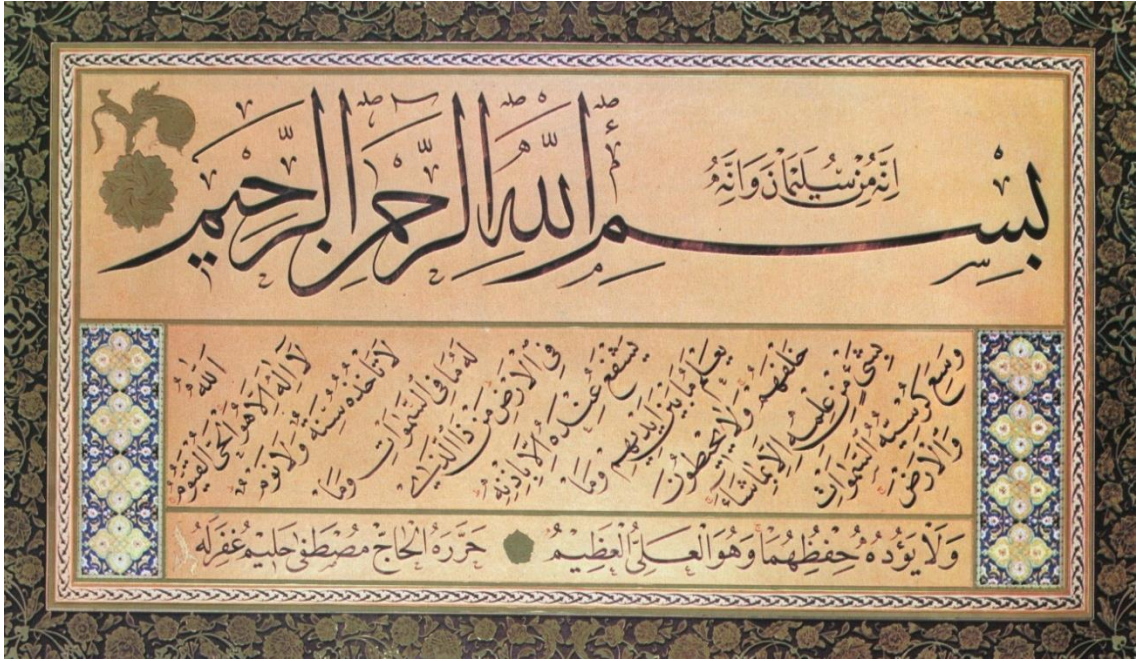 اِنَّهُ مِنْ سُلَيْمٰانَ وَاِنَّهُ
بِسْمِ اللّٰهِ الرَّحْمٰنِ الرَّحِيمِ
اَللّٰهُ
لَا اِلٰهَ اِلَّا هُوَ الْحَىُّ الْقَيُّومُ
لَا تَأْخُذُهُ سِنَةٌ وَلَا نَوْمٌ
لَهُ مَا فِى السَّمٰوَاتِ وَمَا
فِى الْاَرْضِ مَنْ ذَا الَّذِى
يَشْفَعُ عِنْدَهُ اِلَّا بِاِذْنِهِ
يَعْلَمُ مَا بَيْنَ اَيْدِيهِمْ وَمَا
خَلْفَهُمْ وَلَا يُحِيطُونَ
بِشَىْءٍ مِنْ عِلْمِهِ اِلَّا بِمَا شَاءَ
وَسِعَ كُرْسِيُّهُ السَّمٰوَاتِ
وَالْاَرْضَ
وَلَا يَؤُدُهُ حِفْظُهُمَا وَهُوَ الْعَلِىُّ الْعَظِيمُ حَرَّرَهُ الْحَاجّ مُصْطَفٰى حَلِيم غُفِرَلَهُ